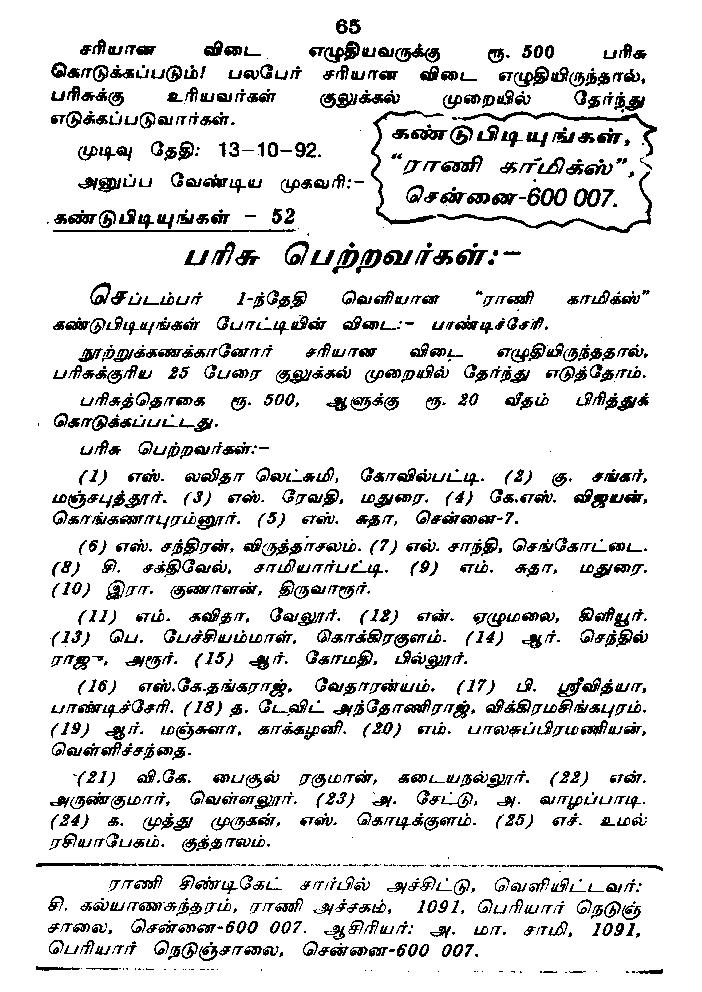 65
சரியான விடை எழுதியவருக்கு ரூ. 500 பரிசு
கொடுக்கப்படும்! பலபேர் சரியான விடை எழுதியிருந்தால்,
பரிசுக்கு உரியவர்கள் குலுக்கல் முறையில் தேர்ந்து
எடுக்கப்படுவார்கள்.
முடிவு தேதி: 13-10-92.
அனுப்ப வேண்டிய முகவரி:-
கண்டுபிடியுங்கள் - 52
கண்டுபிடியுங்கள்,
"ராணி காமிக்ஸ்",
சென்னை-600 007.
பரிசு பெற்றவர்கள்:-
செப்டம்பர் 1-ந்தேதி வெளியான "ராணி காமிக்ஸ்"
கண்டுபிடியுங்கள் போட்டியின் விடை:- பாண்டிச்சேரி.
நூற்றுக்கணக்கானோர் சரியான விடை எழுதியிருந்ததால்,
பரிசுக்குரிய 25 பேரை குலுக்கல் முறையில் தேர்ந்து எடுத்தோம்.
பரிசுத்தொகை ரூ. 500, ஆளுக்கு ரூ. 20 வீதம் பிரித்துக்
கொடுக்கப்பட்டது.
பரிசு பெற்றவர்கள்:-
(1) எஸ். லலிதா லெட்சுமி, கோவில்பட்டி. (2) கு. சங்கர்,
மஞ்சபுத்தூர். (3) எஸ். ரேவதி, மதுரை. (4) கே.எஸ். விஜயன்,
கொங்கணாபுரம்னூர். (5) எஸ். சுதா, சென்னை-7.
(6) எஸ். சந்திரன், விருத்தாசலம். (7) எல். சாந்தி, செங்கோட்டை.
(8) சி. சக்திவேல், சாமியார்பட்டி. (9) எம். சுதா, மதுரை.
(10) இரா. குணாளன், திருவாரூர்.
(11) எம். கவிதா, வேலூர். (12) என். ஏழுமலை, கிளியூர்.
(13) பெ. பேச்சியம்மாள், கொக்கிரகுளம். (14) ஆர். செந்தில்
ராஜு, அரூர். (15) ஆர். கோமதி, பில்லூர்.
(16) எஸ்.கே.தங்கராஜ், வேதாரன்யம். (17) பி. ஸ்ரீவித்யா,
பாண்டிச்சேரி. (18) த. டேவிட் அந்தோணிராஜ், விக்கிரமசிங்கபுரம்.
(19) ஆர். மஞ்சுளா, காக்கழனி. (20) எம். பாலசுப்பிரமணியன்,
வெள்ளிச்சந்தை.
(21) வி.கே. பைசூல் ரகுமான், கடையநல்லூர். (22) என்.
அருண்குமார், வெள்ளலூர். (23) அ. சேட்டு, அ. வாழப்பாடி.
(24) க. முத்து முருகன், எஸ். கொடிக்குளம். (25) எச். உமல்
ரசியாபேகம். குத்தாலம்.
ராணி சிண்டிகேட் சார்பில் அச்சிட்டு, வெளியிட்டவர்:
சி. கல்யாணசுந்தரம், ராணி அச்சகம், 1091, பெரியார் நெடுஞ்
சாலை, சென்னை-600 007. ஆசிரியர்: அ. மா. சாமி, 1091,
பெரியார் நெடுஞ்சாலை, சென்னை-600 007.